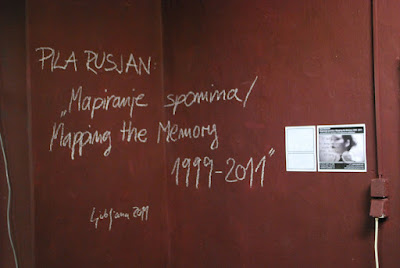 PILA RUSJAN:
„Mapiranje spomina/
Mapping the Memory
1999-2011"
Ljubljana 2011